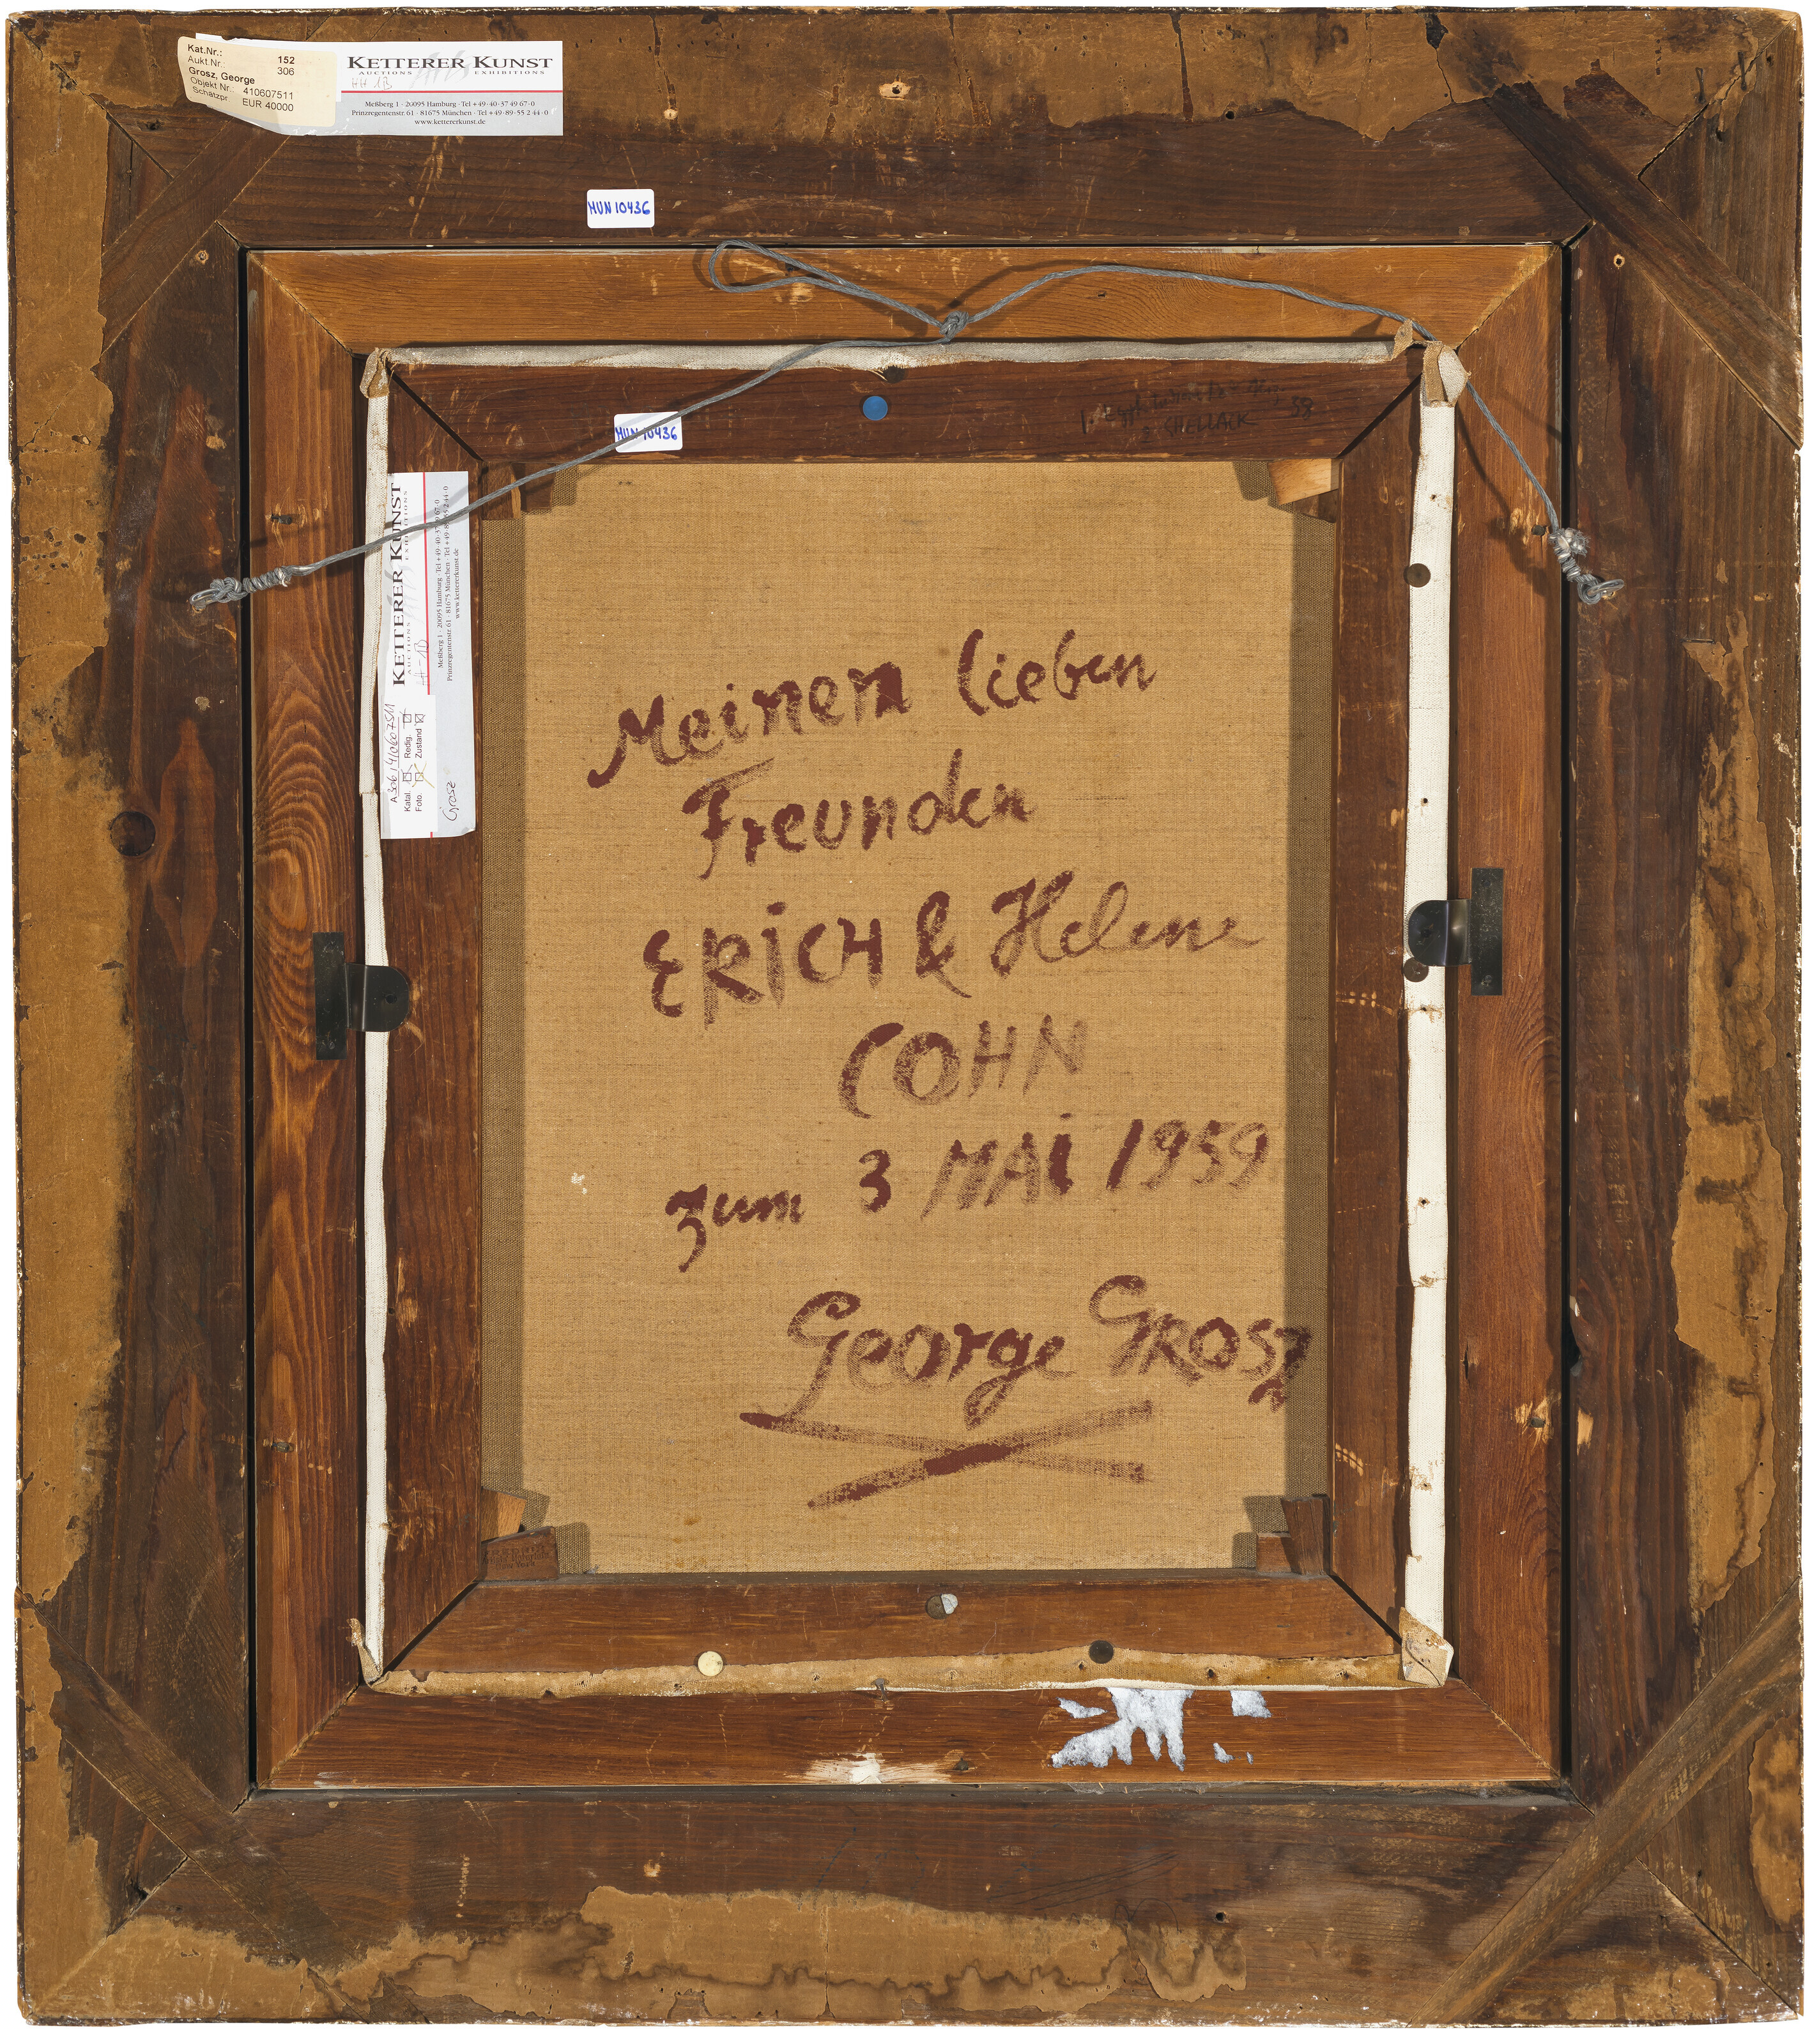 Kat.Nr.: 152
Aukt.Nr.: 306
Grosz, George
Objekt Nr.: 410607511
Schätzpr. EUR 40000
KETTERER KUNST
AUCTIONS EXHIBITIONS
HH 1B
Meßberg 1 · 20095 Hamburg · Tel +49-40-37 49 67-0
Prinzregentenstr. 61 · 81675 München · Tel +49-89-55 2 44-0
www.kettererkunst.de
MUN 10436
MUN 10436
2 SHELLACK
KETTERER KUNST
AUCTIONS EXHIBITIONS
Meßberg 1 · 20095 Hamburg · Tel +49-40-37 49 67-0
Prinzregentenstr. 61 · 81675 München · Tel +49-89-55 2 44-0
www.kettererkunst.de
A 306 / 410607511
Katal. Redig.
Foto. Zustand
Grosz
Meinen lieben
Freunden
ERiCH & Helene
COHN
zum 3 MAi 1959
George GROSZ
New York